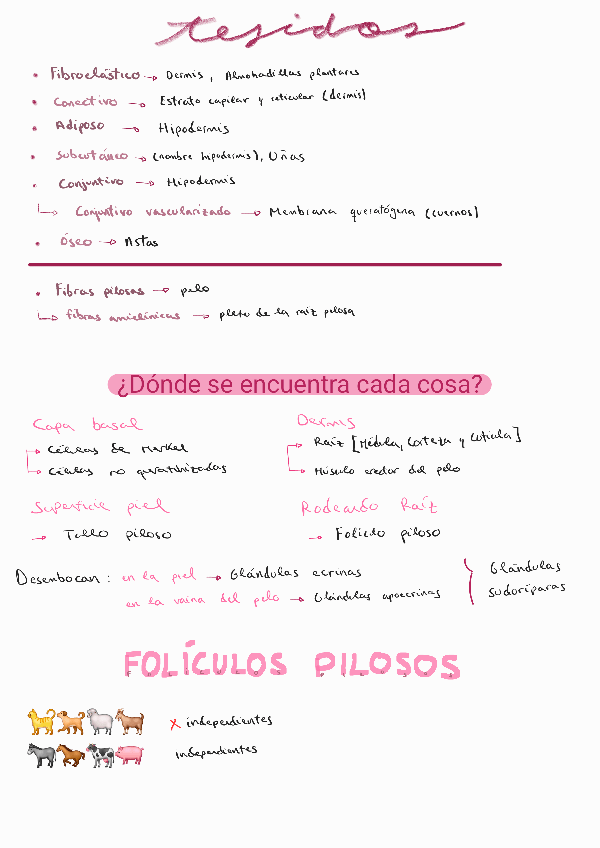 tejidos
• Fibroelástico → Dermis, Almohadillas plantares
• Conectivo → Estrato capilar y reticular (dermis)
• Adiposo → Hipodermis
• Subcutáneo → (nombre hipodermis), Uñas
• Conjuntivo → Hipodermis
↳ Conjuntivo vascularizado → Membrana queratógena (cuernos)
• Óseo → Astas
• Fibras pilosas → pelo
↳ fibras amielínicas → plexo de la raíz pilosa
¿Dónde se encuentra cada cosa?
Capa basal
→ Células de Merkel
→ Células no queratinizadas
Dermis
→ Raíz [Médula, Corteza y Cutícula]
→ Músculo erector del pelo
Superficie piel
→ Tallo piloso
Rodeando Raíz
→ Folículo piloso
Desembocan: en la piel → Glándulas ecrinas
en la vaina del pelo → Glándulas apocrinas
Glándulas
sudoríparas
FOLÍCULOS PILOSOS
X independientes
independientes